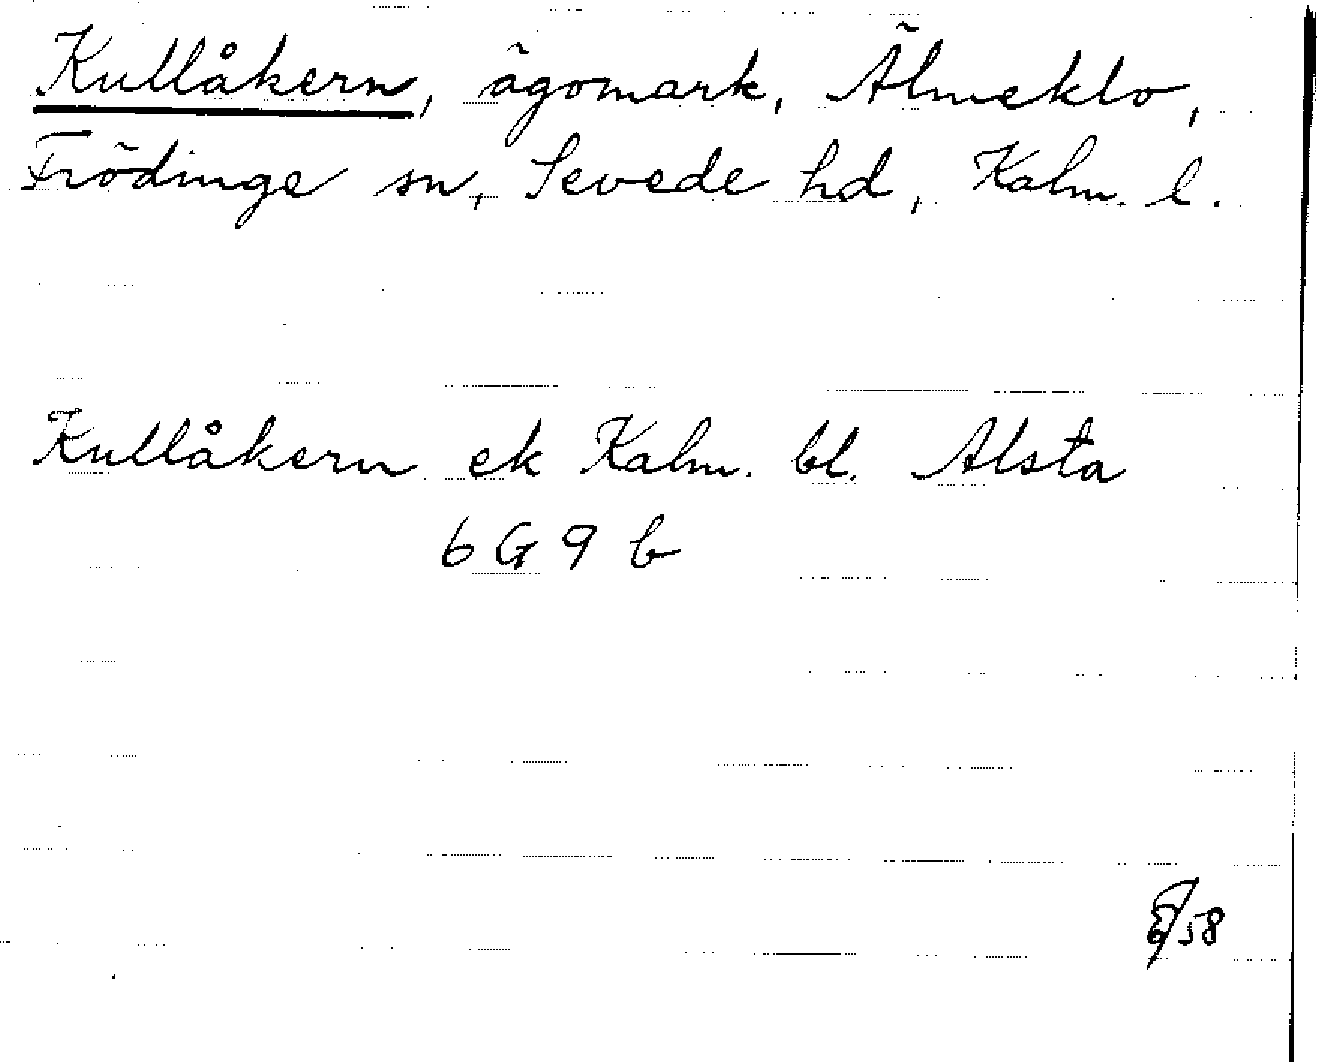 Kullåkern, ägomark, Älmeklo,
Frödinge sn, Sevede hd, Kalm. l.
Kullåkern ek Kalm. bl. Alsta
6 G 9 b